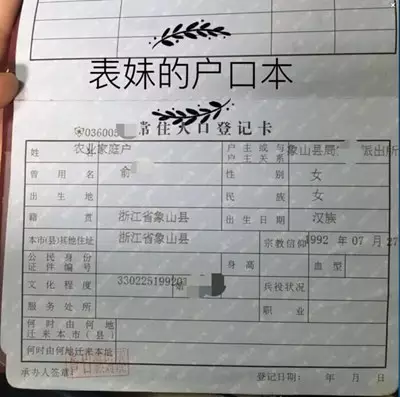 表妹的户口本
常住人口登记卡
农业家庭户
姓 户主或与户主关系 象山县局 派出所
曾用名 俞 性别 女
出生地 民族 女
籍贯 浙江省象山县 出生日期 汉族
本市(县)其他住址 浙江省象山县 宗教信仰 1992 年 07 月 27
公民身份证件编号 身高 血型
文化程度 330225199207 兵役状况
服务处所 职业
何时由何地迁来本市(县)
何时由何地迁来本址
承办人签章: 登记日期: 年 月 日